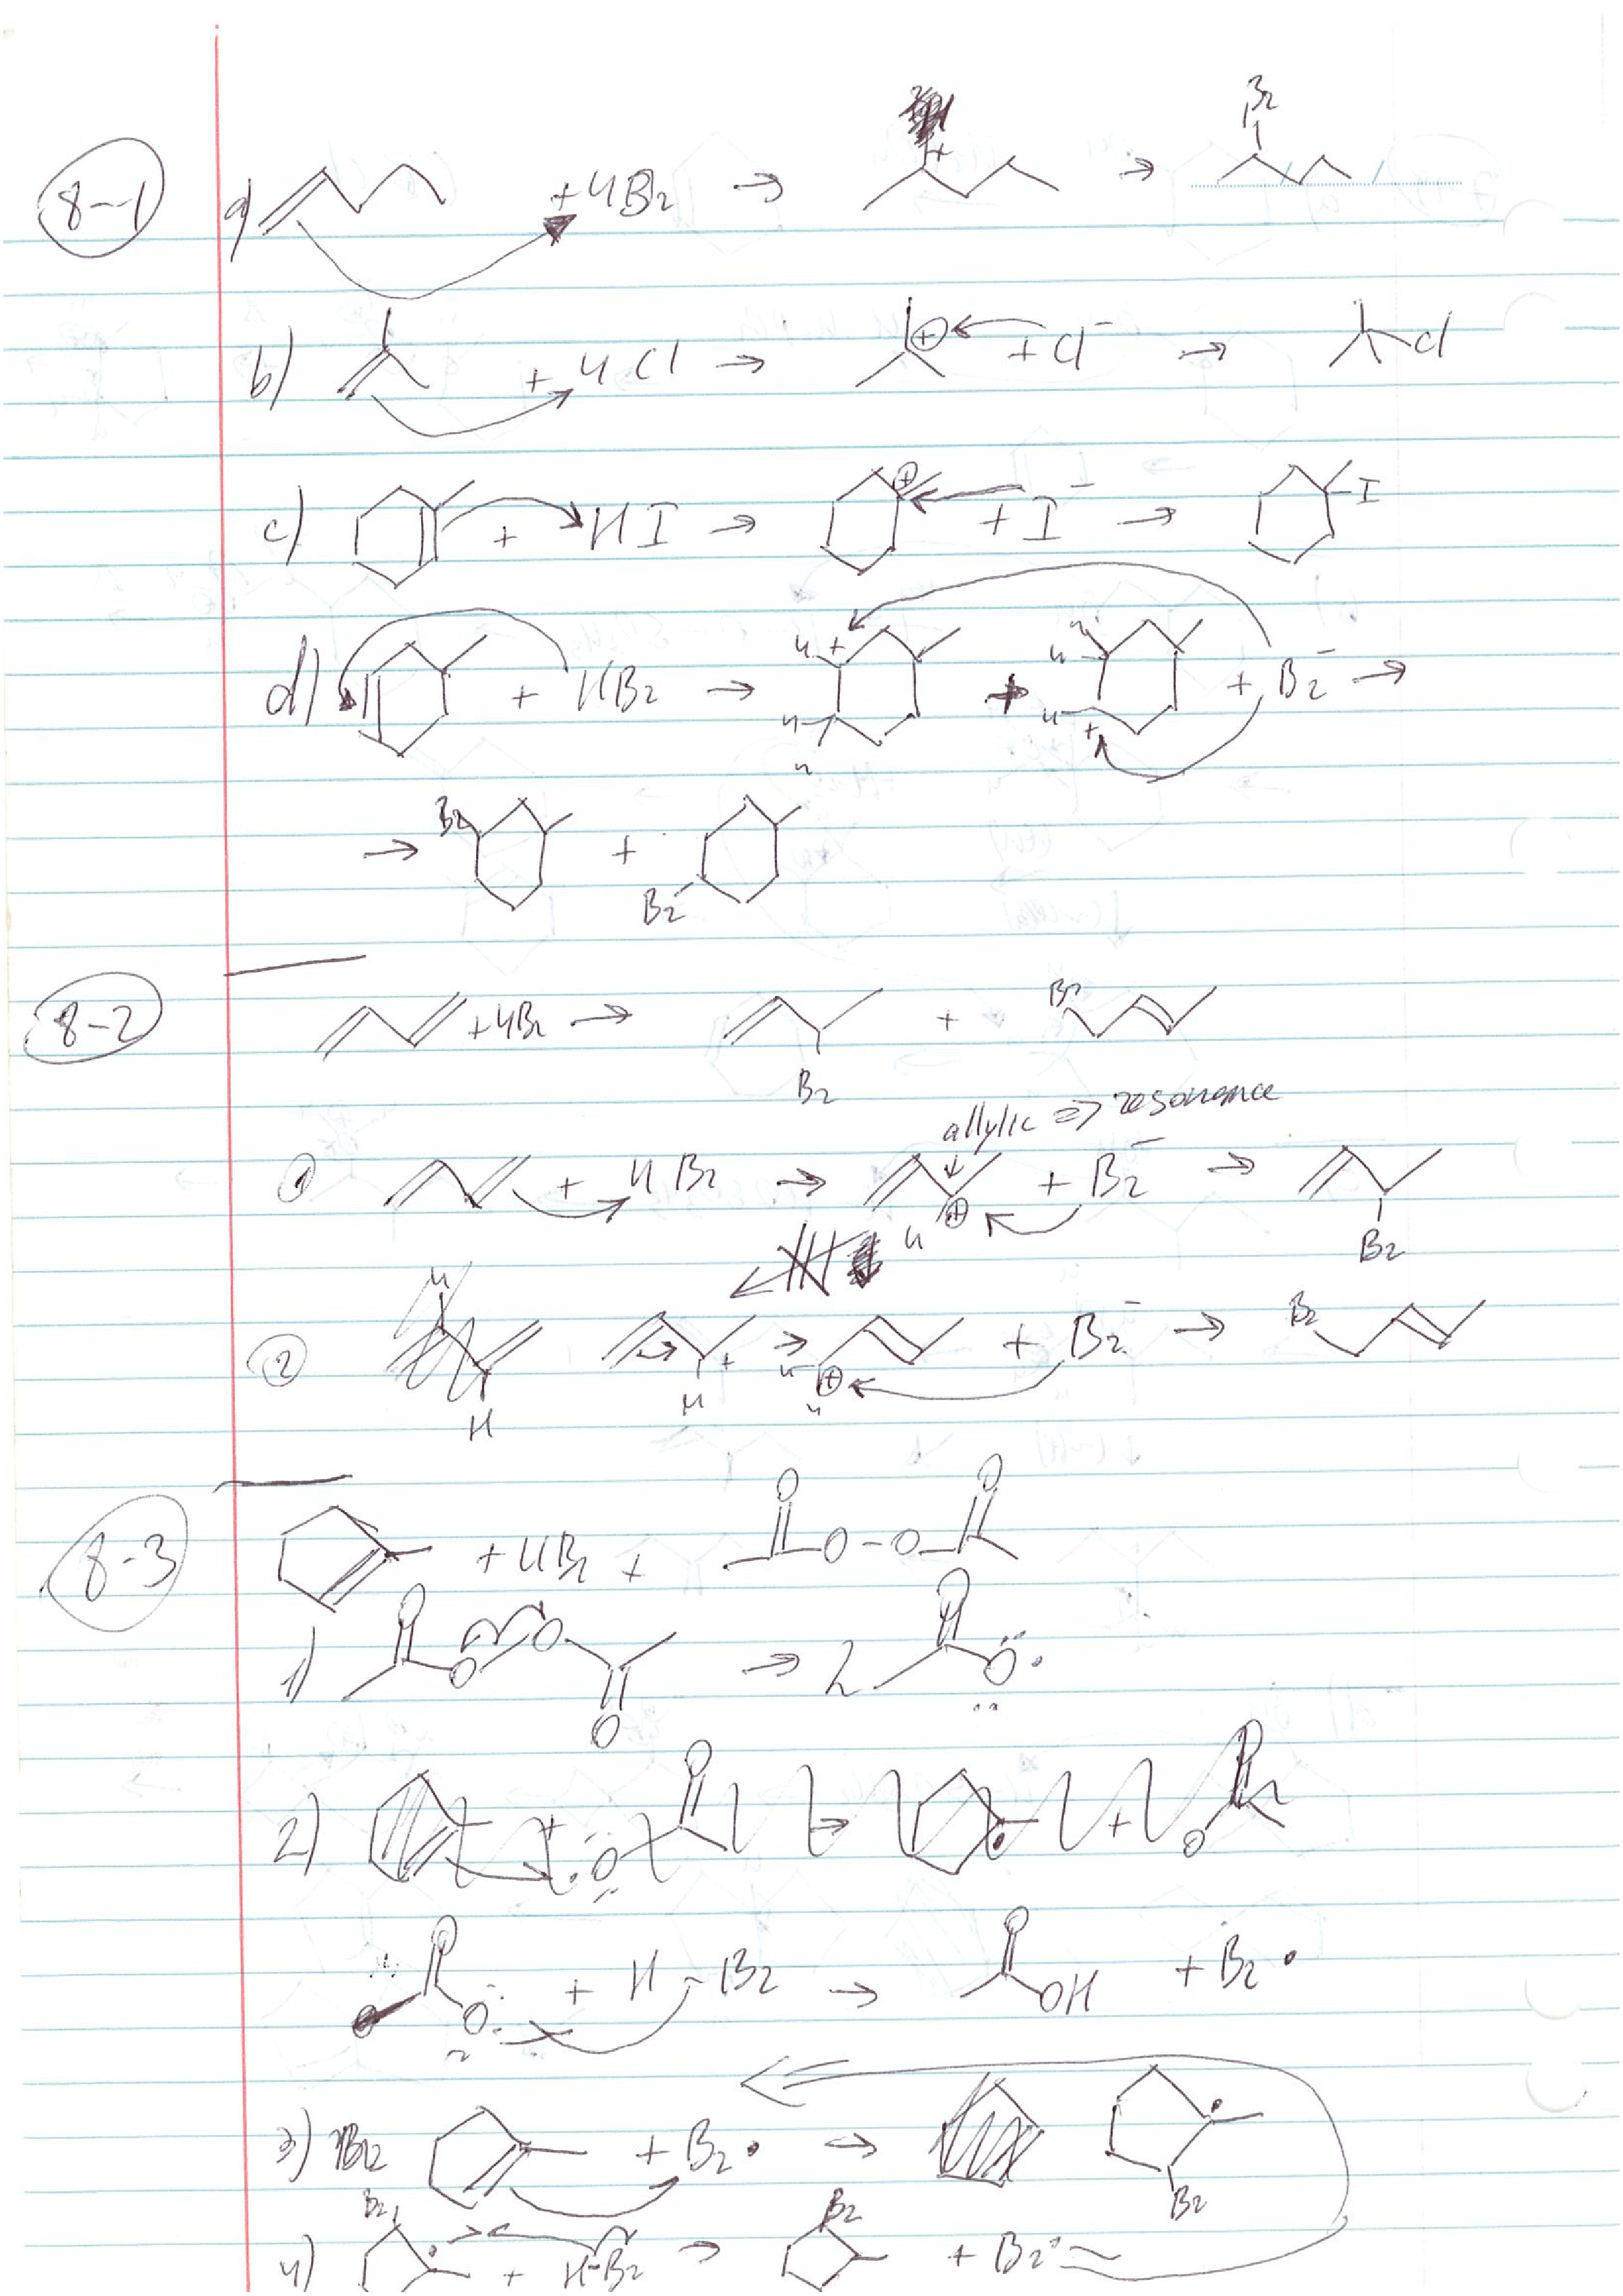 8-1 a) + HBr → + → Br
b) + HCl → ⊕ + Cl⁻ → Cl
c) + HI → ⊕ + I⁻ → I
d) + HBr → H + H H + H H + + Br⁻ →
→ Br + Br
8-2 + HBr → Br + Br
allylic => resonance
① + HBr → ⊕ H + Br⁻ → Br
② H + H → H ⊕ H + Br⁻ → Br
8-3 + HBr + O O-O O
1) O O O O → 2 O O·
2) + ·O O → · + O O
O O· + H-Br → O OH + Br·
3) + Br· → · Br
4) Br · + H-Br → Br + Br·